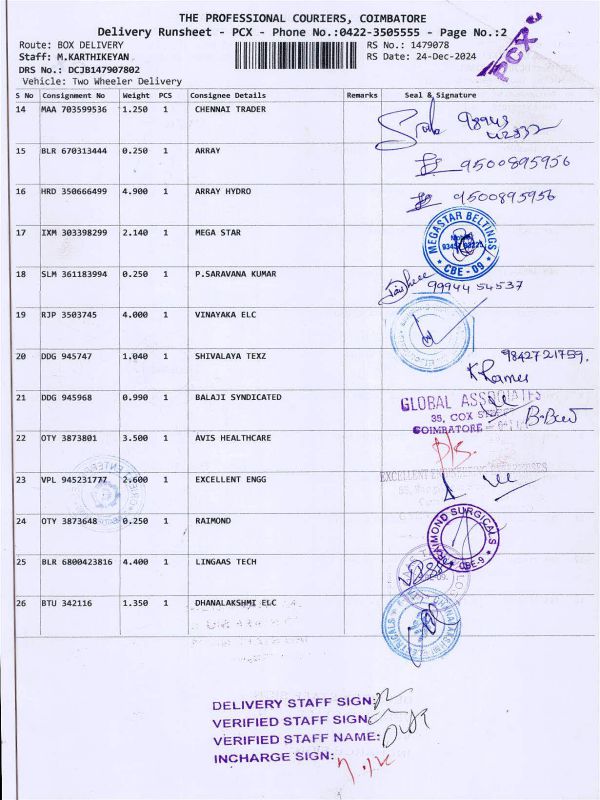 THE PROFESSIONAL COURIERS, COIMBATORE
Delivery Runsheet - PCX - Phone No.:0422-3505555 - Page No.:2
PCX
Route: BOX DELIVERY
RS No.: 1479078
Staff: M.KARTHIKEYAN
RS Date: 24-Dec-2024
DRS No.: DCJB147907802
Vehicle: Two Wheeler Delivery
S No Consignment No Weight PCS Consignee Details Remarks Seal & Signature
14 MAA 703599536 1.250 1 CHENNAI TRADER
15 BLR 670313444 0.250 1 ARRAY 9500895956
16 HRD 350666499 4.900 1 ARRAY HYDRO 9500895956
17 IXM 303398299 2.140 1 MEGA STAR
MEGASTAR BELTINGS
CBE - 09
18 SLM 361183994 0.250 1 P.SARAVANA KUMAR 99944 54537
19 RJP 3503745 4.000 1 VINAYAKA ELC
20 DDG 945747 1.040 1 SHIVALAYA TEXZ 9842721759.
21 DDG 945968 0.990 1 BALAJI SYNDICATED
GLOBAL ASSOCIATES
35, COX STREET
COIMBATORE
22 OTY 3873801 3.500 1 AVIS HEALTHCARE
23 VPL 945231777 2.600 1 EXCELLENT ENGG
EXCELLENT
24 OTY 3873648 0.250 1 RAIMOND
RAIMOND SURGICALS
CBE-9
25 BLR 6800423816 4.400 1 LINGAAS TECH
26 BTU 342116 1.350 1 DHANALAKSHMI ELC
DELIVERY STAFF SIGN:
VERIFIED STAFF SIGN:
VERIFIED STAFF NAME:
INCHARGE SIGN: